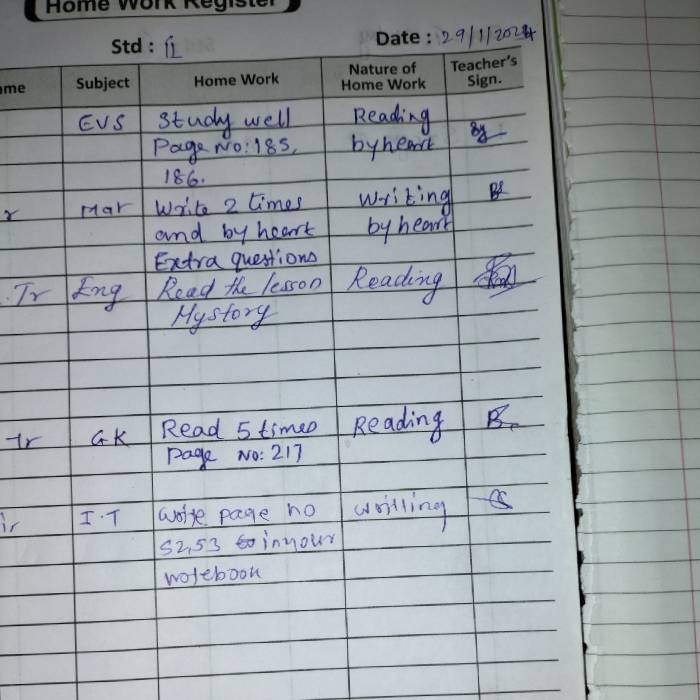 Home Work Register
Std : II
Date : 29/1/2024
ame Subject Home Work Nature of Home Work Teacher's Sign.
EVS Study well Reading
Page No: 185, byheart
186.
r Mat Write 2 times Writing
and by heart by heart
Extra questions
. Tr Eng Read the lesson Reading
Mystory
Tr GK Read 5 times Reading
Page No: 217
ir I.T write page no writting
52,53 in your
notebook